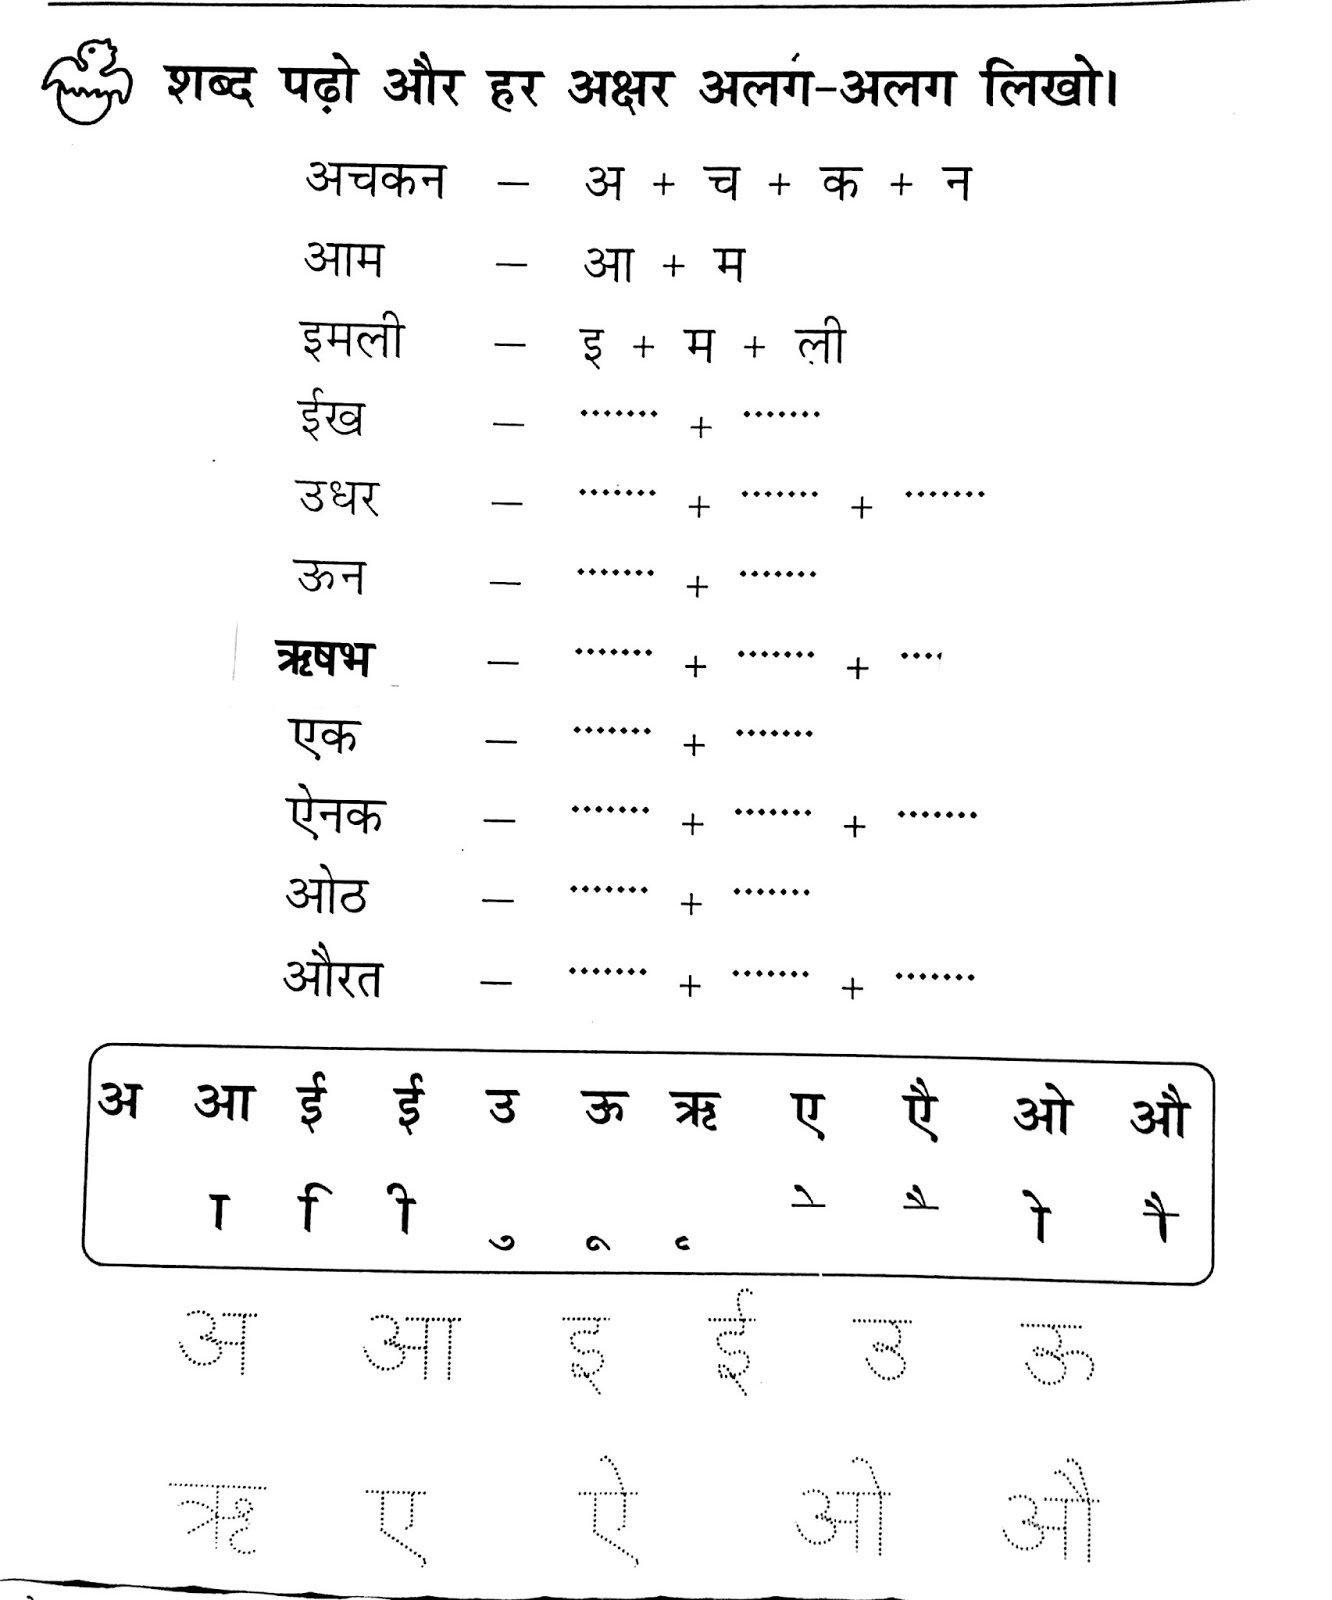 शब्द पढ़ो और हर अक्षर अलग-अलग लिखो।
अचकन – अ + च + क + न
आम – आ + म
इमली – इ + म + ली
ईख – ....... + .......
उधर – ....... + ....... + .......
ऊन – ....... + .......
ऋषभ – ....... + ....... + ....
एक – ....... + .......
ऐनक – ....... + ....... + .......
ओठ – ....... + .......
औरत – ....... + ....... + .......
अ आ ई ई उ ऊ ऋ ए एै ओ औ
ा ि ी ु ू ृ े ै ो ौ
अ आ इ ई उ ऊ
ऋ ए ऐ ओ औ